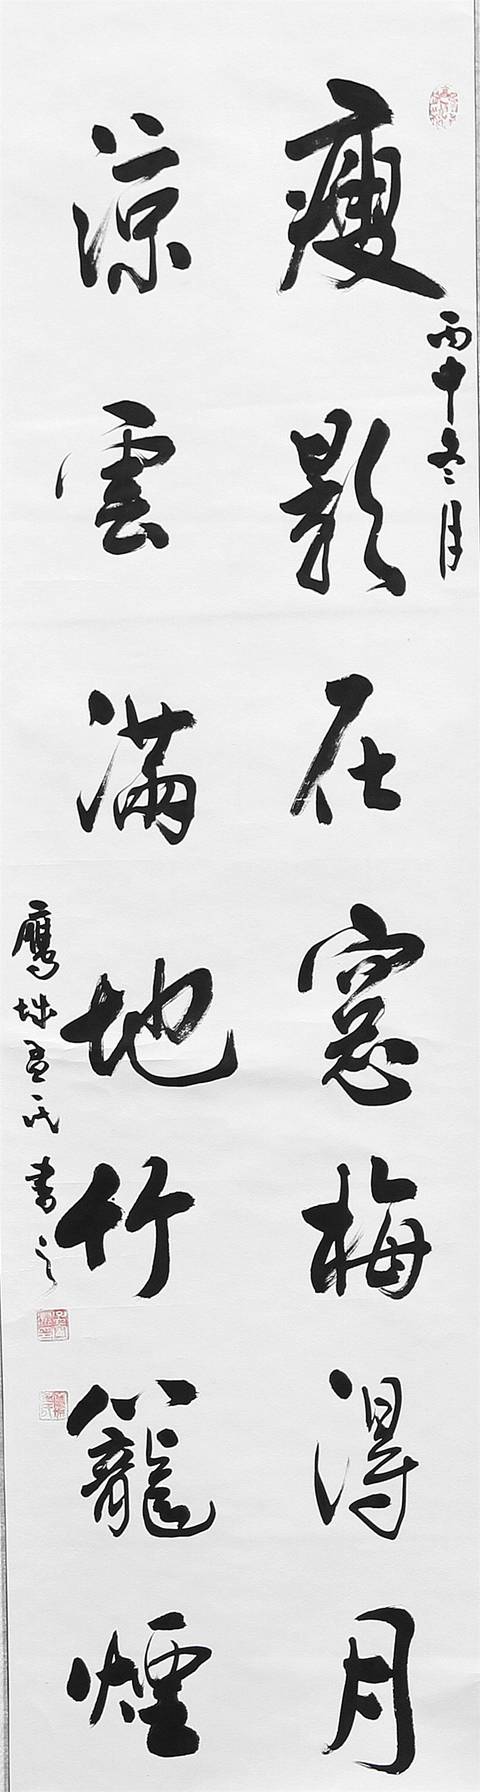 丙申冬月
瘦影在窓梅得月
涼雲滿地竹籠煙
鷹坳孟氏書之